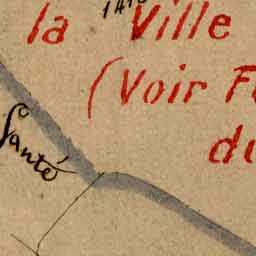 la Ville
(Voir F
du
Santé